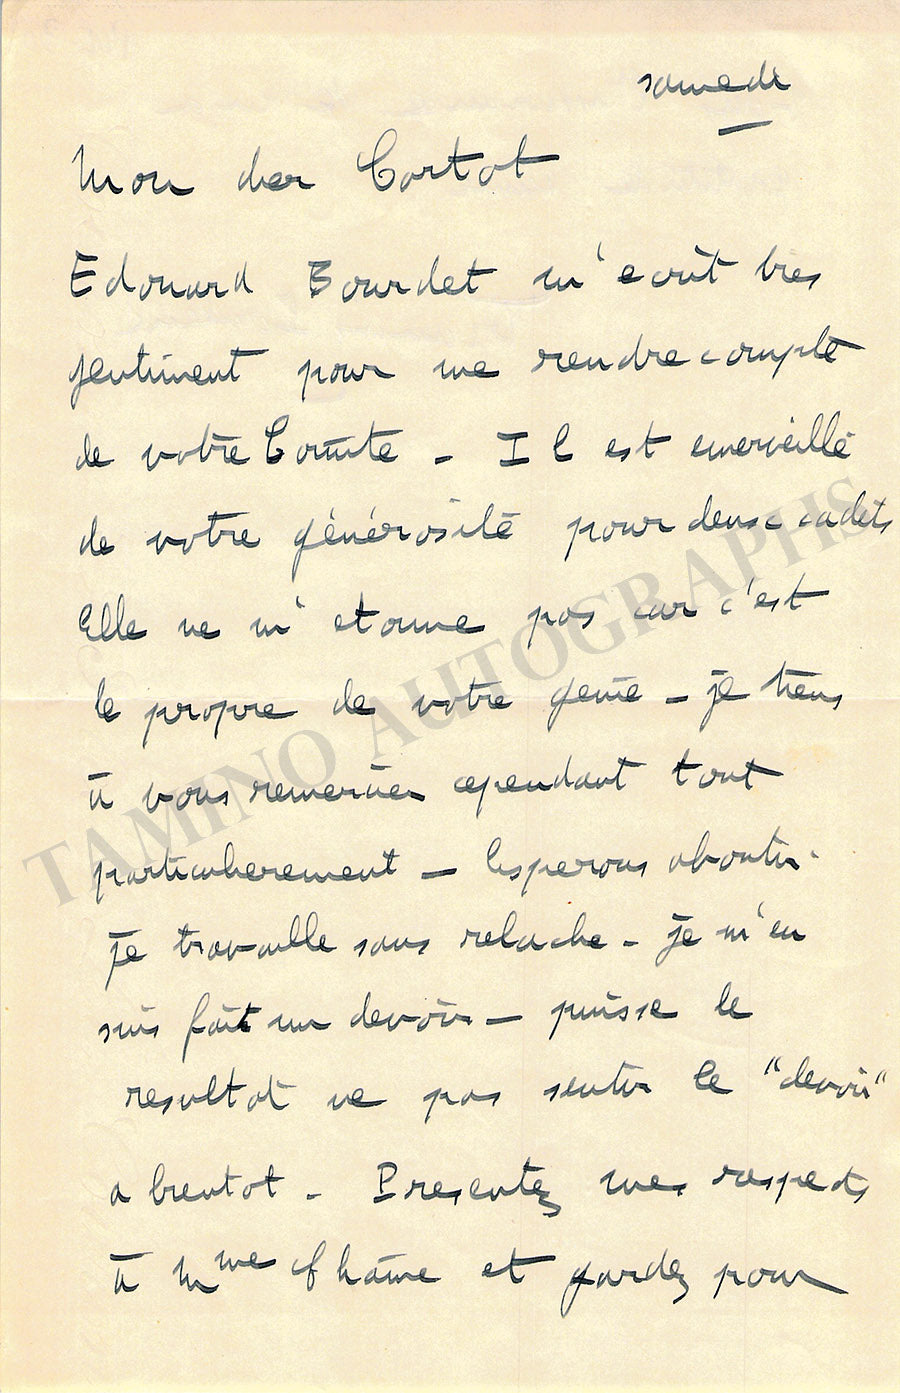 samedi
Mon cher Cortot
Edouard Bourdet m'ecrit très
gentiment pour me rendre compte
de votre Comité - Il est emerveillé
de votre générosité pour deux cadets
Elle ne m'etonne pas car c'est
le propre de votre genie - je tiens
à vous remercier cependant tout
particulierement - Esperons aboutir.
je travaille sans relache - je m'en
suis fait un devoir - puisse le
resultat ne pas sentir le "devoir"
a bientot - Presentez mes respects
à Mme et gardez pour
TAMINO AUTOGRAPHS